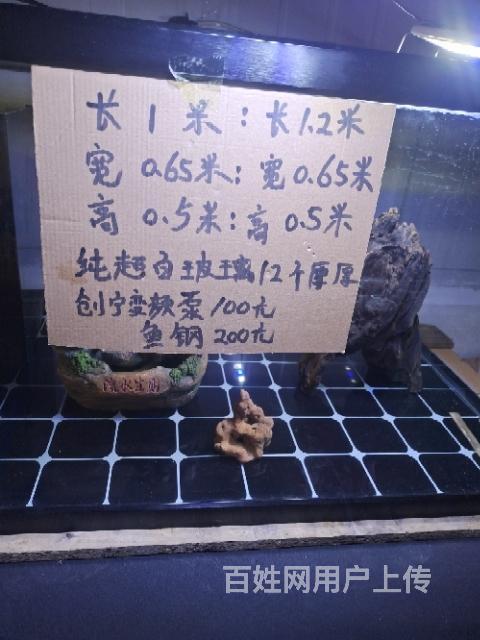 长1米：长1.2米
宽0.65米：宽0.65米
高0.5米：高0.5米
纯超白玻璃12个厘厚
创宁变频泵100元
鱼钢200元
流水生财
百姓网用户上传